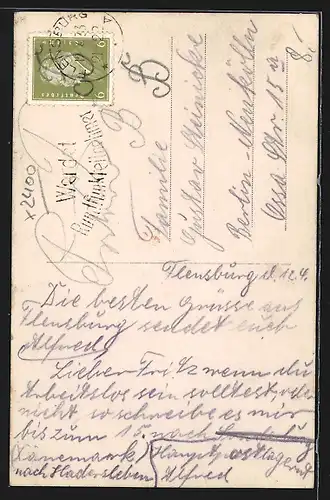 Flensburg d. 12.4.
Die besten Grüsse aus
Flensburg sendet euch
Alfred
Lieber Fritz wenn du
Arbeitslos sein solltest, oder
nicht, so schreibe es mir
bis zum 15. nach
Dänemark
nach Hadersleben Alfred
Familie
Gustav
Berlin-Neukölln
Ossa Str. 15 a
Werdet
Rundfunkteilnehmer
6
6
x2400
8,-